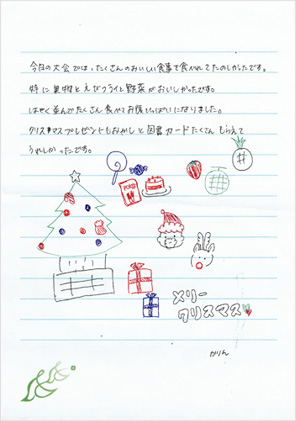 今日の大会では、たくさんのおいしい食事で食べれてたのしかったです。
特に果物とえびフライと野菜がおいしかったです。
はやく並んでたくさん食べてお腹いっぱいになりました。
クリスマスプレゼントもおかしと図書カードたくさんもらえて
うれしかったです。
メリー
クリスマス
かりん